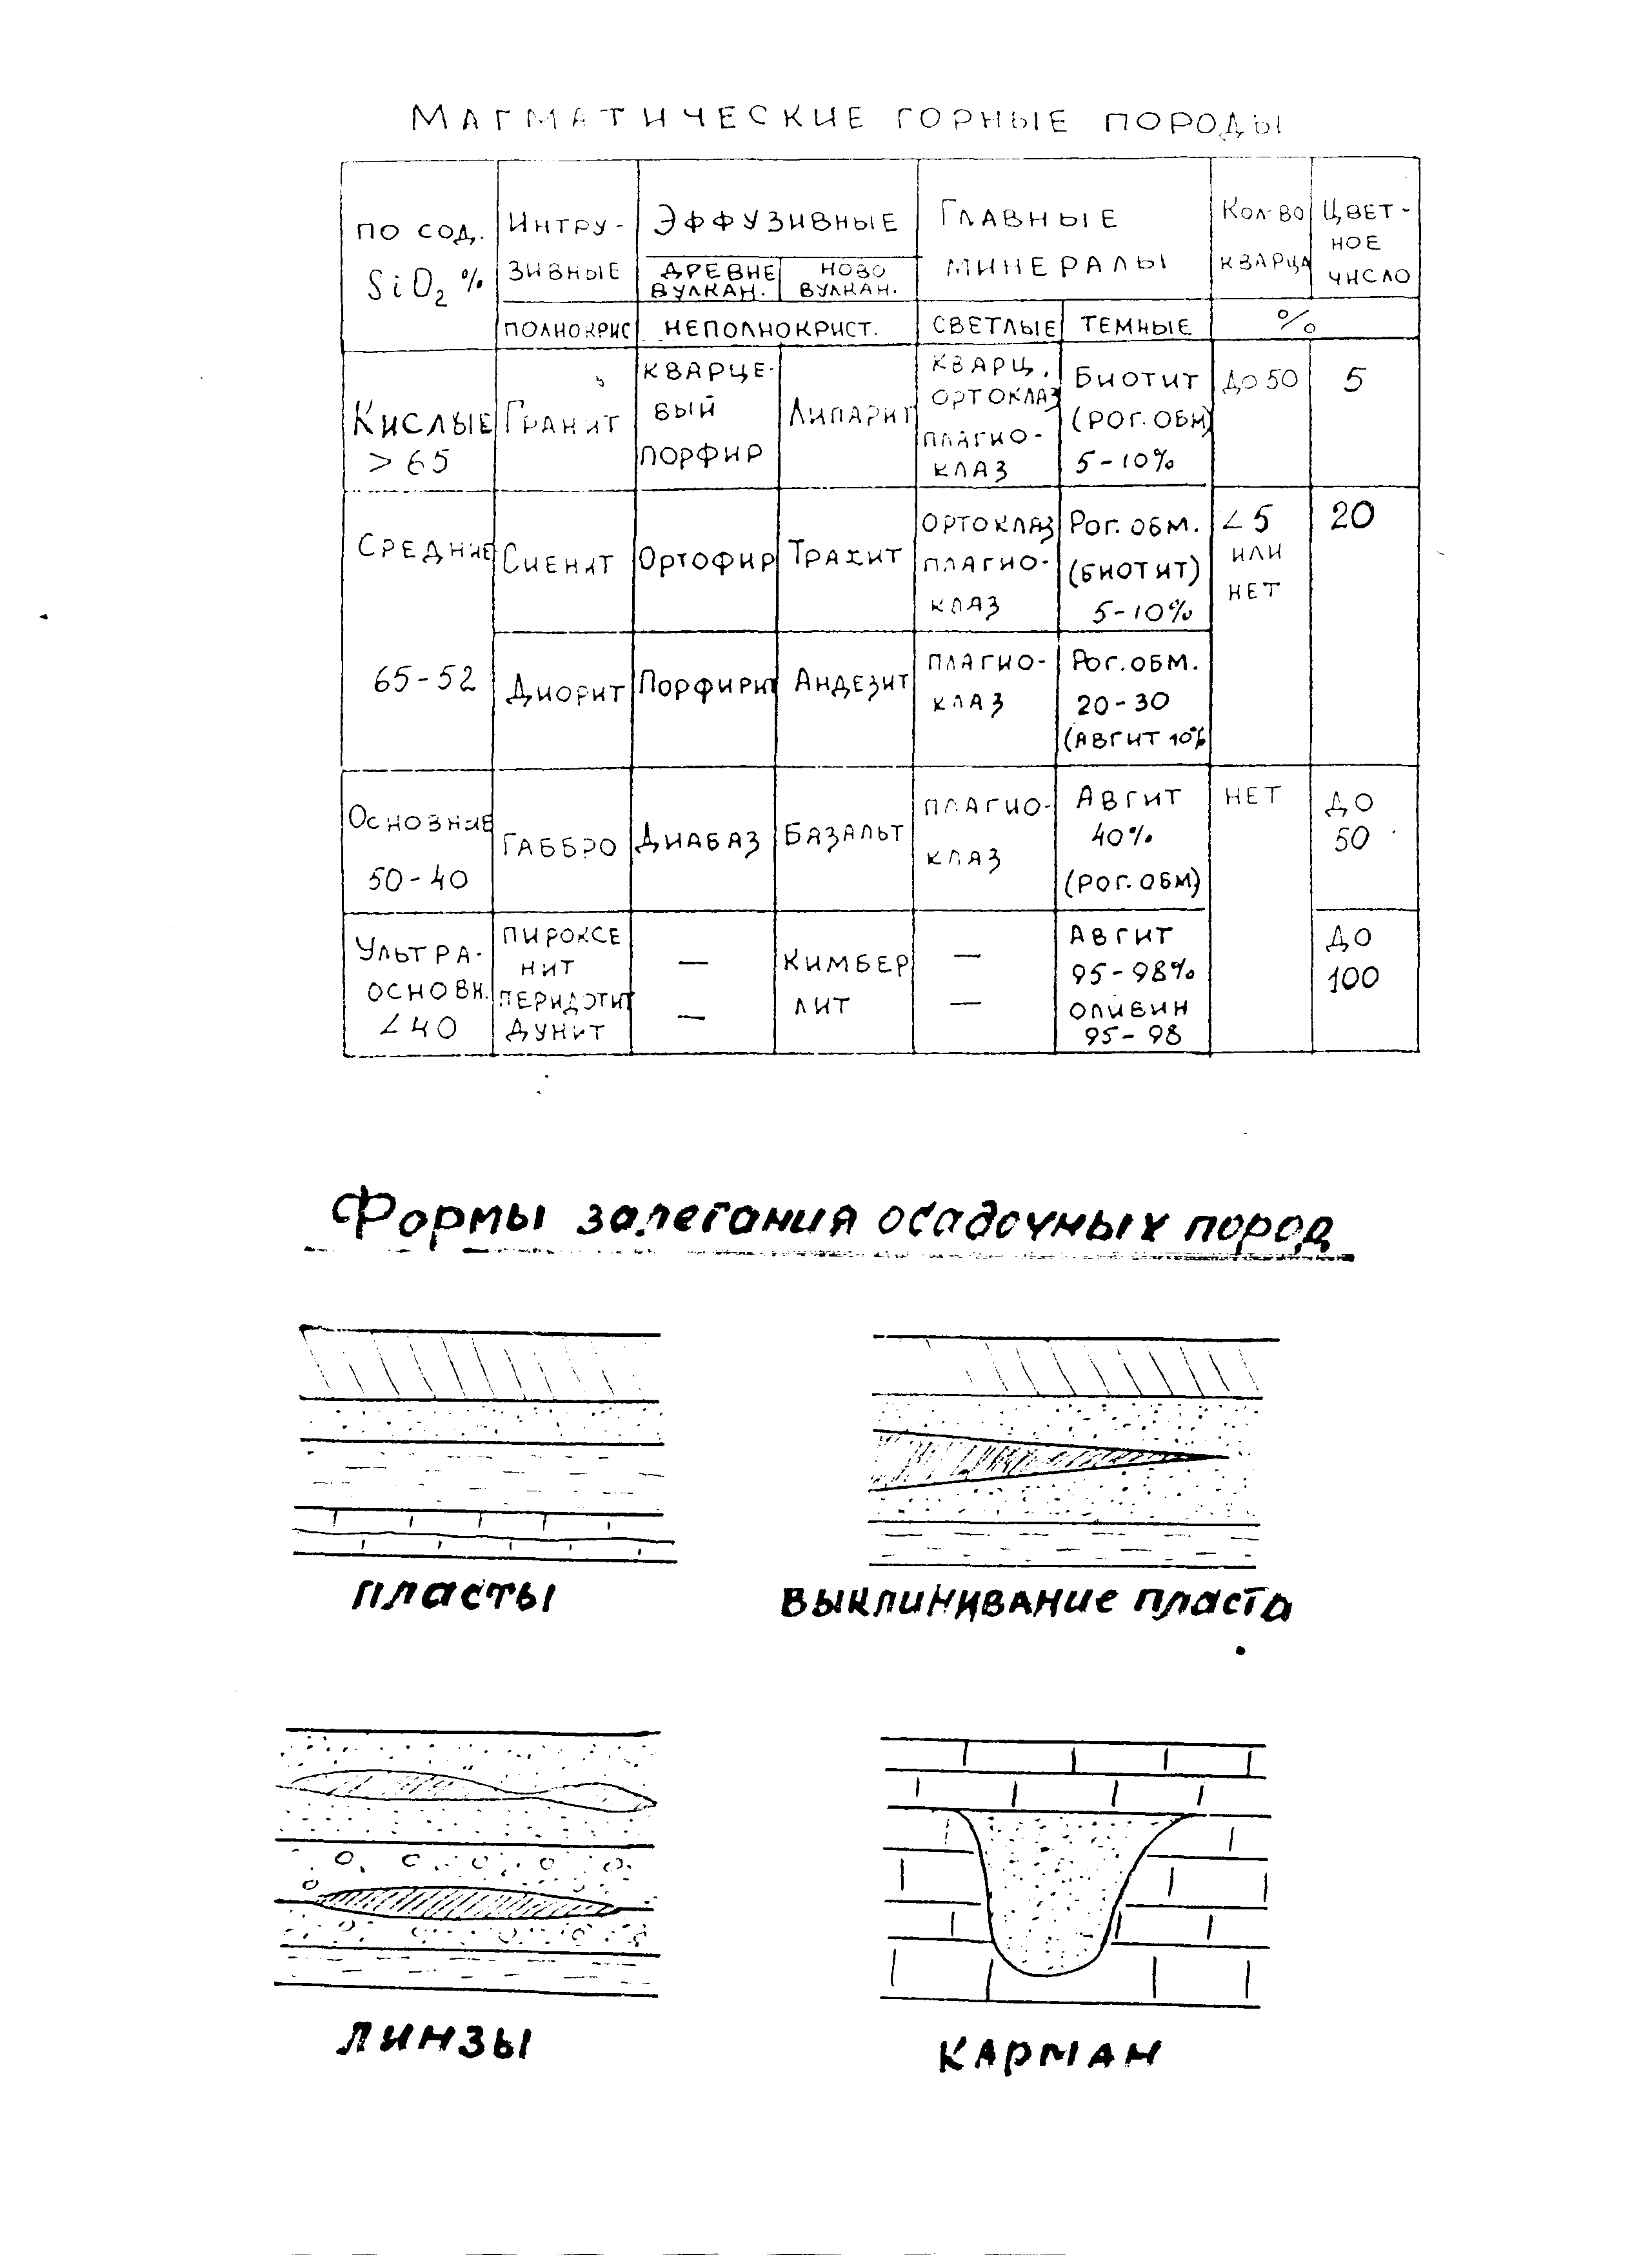 МАГМАТИЧЕСКИЕ ГОРНЫЕ ПОРОДЫ
ПО СОД.
SiO2 %
ИНТРУ-
ЗИВНЫЕ
ПОЛНОКРИС
ЭФФУЗИВНЫЕ
ДРЕВНЕ
ВУЛКАН.
НОВО
ВУЛКАН.
НЕПОЛНОКРИСТ.
ГЛАВНЫЕ
МИНЕРАЛЫ
СВЕТЛЫЕ
ТЕМНЫЕ
КОЛ-ВО
КВАРЦА
ЦВЕТ-
НОЕ
ЧИСЛО
%
КИСЛЫЕ
> 65
ГРАНИТ
КВАРЦЕ-
ВЫЙ
ПОРФИР
ЛИПАРИТ
КВАРЦ,
ОРТОКЛАЗ
ПЛАГИО-
КЛАЗ
БИОТИТ
(РОГ. ОБМ)
5-10%
ДО 50
5
СРЕДНИЕ
65-52
СИЕНИТ
ОРТОФИР
ТРАХИТ
ОРТОКЛАЗ
ПЛАГИО-
КЛАЗ
РОГ. ОБМ.
(БИОТИТ)
5-10%
< 5
ИЛИ
НЕТ
20
ДИОРИТ
ПОРФИРИТ
АНДЕЗИТ
ПЛАГИО-
КЛАЗ
РОГ. ОБМ.
20-30
(АВГИТ 10%
ОСНОВНЫЕ
50-40
ГАББРО
ДИАБАЗ
БАЗАЛЬТ
ПЛАГИО-
КЛАЗ
АВГИТ
40%
(РОГ. ОБМ)
НЕТ
ДО
50
УЛЬТРА-
ОСНОВН.
<40
ПИРОКСЕ
НИТ
ПЕРИДОТИТ
ДУНИТ
—
—
КИМБЕР
ЛИТ
—
—
АВГИТ
95-98%
ОЛИВИН
95-98
ДО
100
Формы залегания осадочных пород
ПЛАСТЫ
ВЫКЛИНИВАНИЕ ПЛАСТА
ЛИНЗЫ
КАРМАН